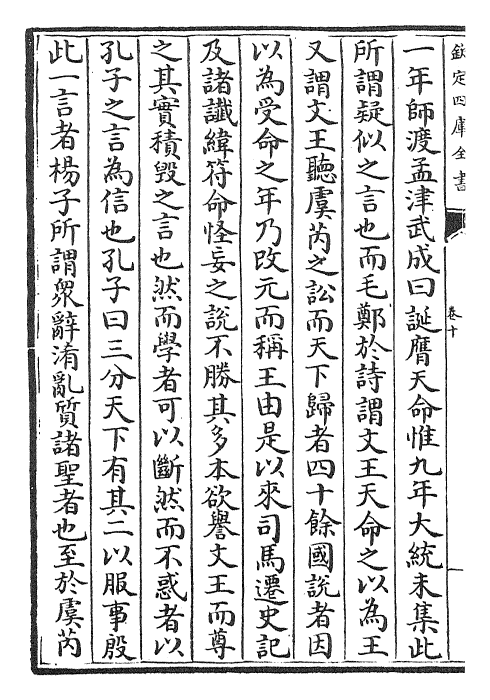 欽定四庫全書
卷十
一年師渡孟津武成曰誕膺天命惟九年大統未集此
所謂疑似之言也而毛鄭於詩謂文王天命之以為王
又謂文王聽虞芮之訟而天下歸者四十餘國說者因
以為受命之年乃改元而稱王由是以來司馬遷史記
及諸讖緯符命怪妄之說不勝其多本欲譽文王而尊
之其實積毀之言也然而學者可以斷然而不惑者以
孔子之言為信也孔子曰三分天下有其二以服事殷
此一言者楊子所謂衆辭淆亂質諸聖者也至於虞芮